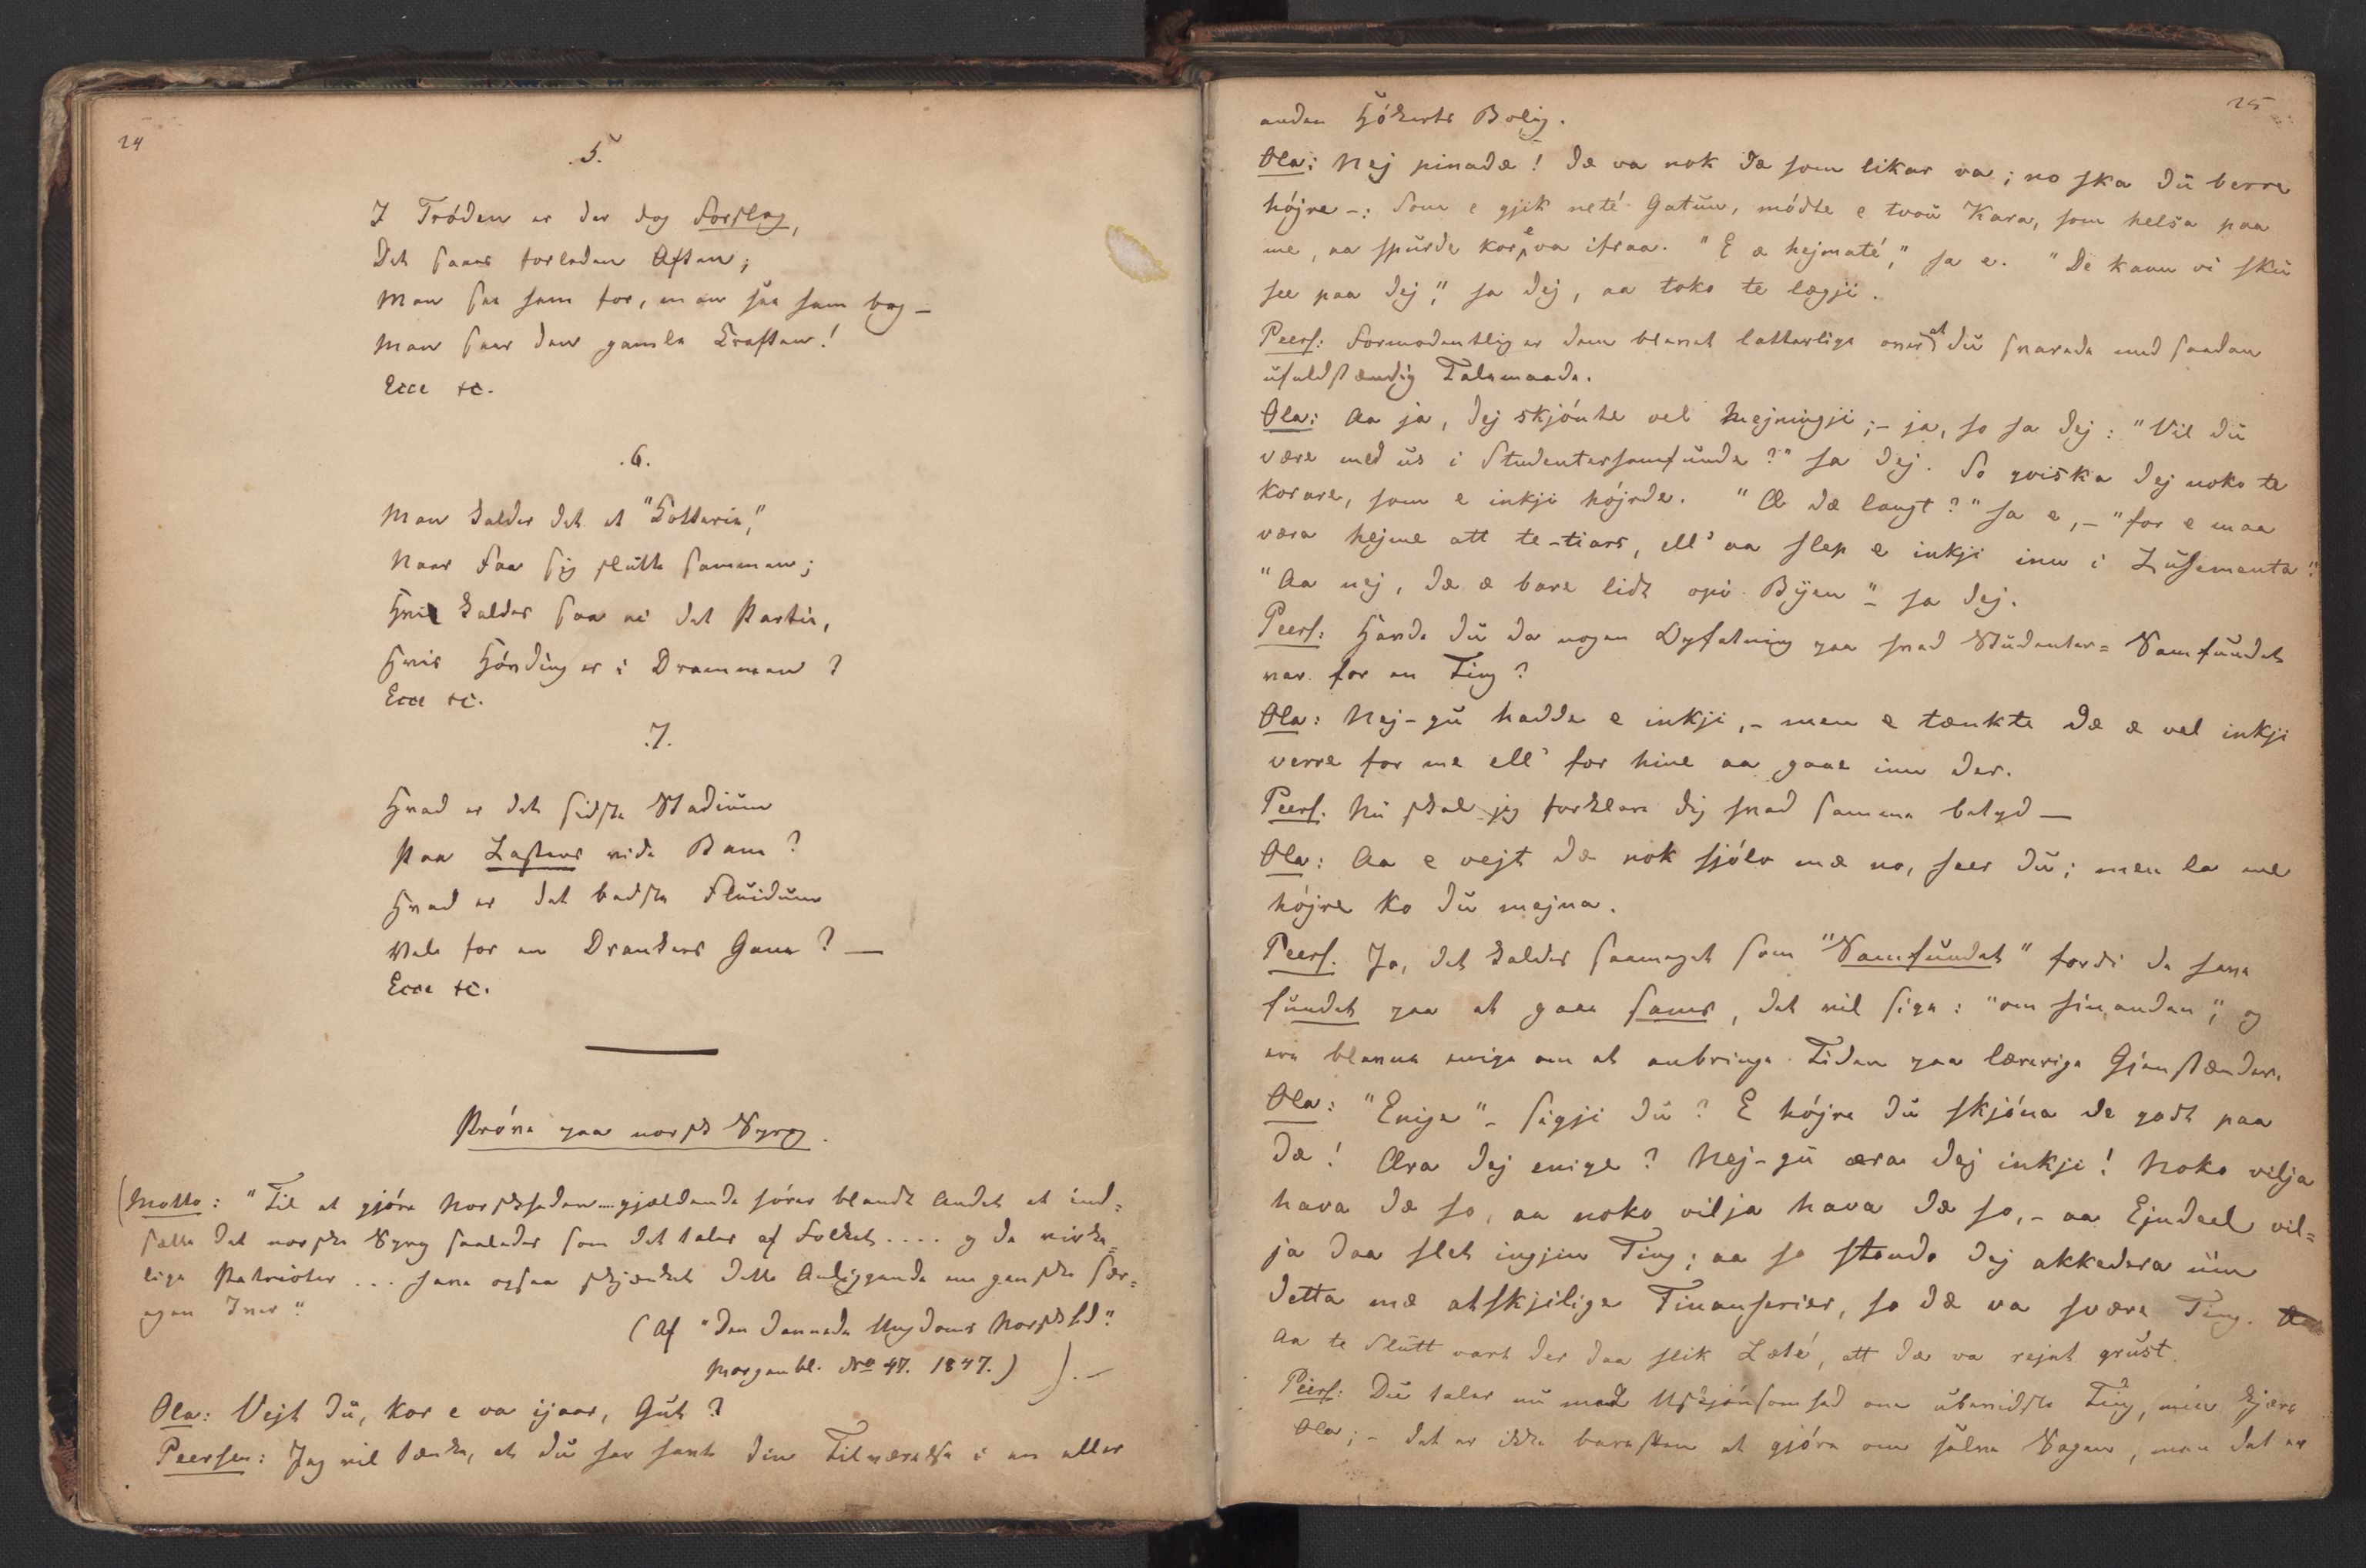 24
.5.
I Trøden er der dog Forslag,
Det saaes forleden Aften;
Man saa ham for, man saa ham bag –
Man saae den gamle Kraften!
Ecce &c.
.6.
Man kalder det et "Lotterie,"
Naar Faa sig slutte sammen;
Hvi kalder saa vi det Parti,
Hvis Høvding er i Drammen?
Ecce &c.
.7.
Hvad er det sidste Stadium
Paa Lastens vide Bane?
Hvad er det bedste Fluidum
Vel for en Drankers Gane? —
Ecce &c.
Prøve paa norsk Sprog.
(Motto: "Til at gjøre Norskheden .... gjældende hører blandt Andet at ind=
sætte det norske Sprog saaledes som det tales af Folket .... og de virke=
lige Patrioter ... have ogsaa skjænket dette Anliggende en ganske sær=
egen Iver"
(Af "Den dannede Ungdoms Norskhed".
Morgenbl. No 47. 1847.) ). –
Ola: Vejt du, kor e va ijaar, Gut?
Peersen: Jeg vil tænke, at du har havt din Tilværelse i en eller
25
anden Høkerts Bolig.
Ola: Nej pinadæ! dæ va nok dæ som likar va; no ska du berre
højre –: Som e gjik neté Gatun, mødte e tvoü Kara, som helsa paa
me, aa spurde kor e va ifraa. "E æ hejmaté," sa e. "De kann vi sku
see paa dej," sa dej, aa toko te lægji.
Peers: Formodentlig er dem blevet latterlige over at du svarede med saadan
ufuldstændig Talemaade.
Ola: Aa ja, dej skjónte vel Mejningji; – ja, so sa dej: "Vil du
være med us i Studentersamfunde?" sa dej. So qviska dej noko te
korare, som e inkji højrde. "Æ dæ langt?" sa e, – "for e maa
væra hejme att te-tiars, ell' aa slep e inkji inn i Lusementa".
"Aa nej, dæ æ bare lidt opi Byen" – sa dej.
Peers: Havde du da nogen Opfatning paa hvad Studenter= Samfundet
var for en Ting?
Ola: Nej-gu hadde e inkji, – men e tænkte dæ æ vel inkji
verre for me ell' for hine aa gaae inn der.
Peers. Nu skal jeg forklare dig hvad samme betyd —
Ola: Aa e vejt dæ nok sjólv mæ no, seer du; men la me
højre ko du mejna.
Peers. Jo, det kaldes saameget som "Samfundet" fordi de have
fundet paa at gaae sams, det vil sige: "om hinanden", og
ere blevne enige om at anbringe Tiden paa lærerige Gjenstænder.
Ola: "Enige" – sigji du? E højre du skjóna de godt paa
dæ! Æra dej enige? Nej-gu æra dej inkji! Noko vilja
hava dæ so, aa noko vilja hava dæ so, – aa Ejndeel vil=
ja daa slet ingjin Ting; aa so stande dej akkedera üm
detta mæ atskjilige Finanserier, so dæ va svære Ting.
Aa te Slutt vart der daa slik Læté, att dæ va rejnt grust.
Peers: Du taler nu med Uskjønsomhed om ubevidste Ting, min kjære
Ola; – det er ikke baresten at gjøre om sælve Sagen, men det er